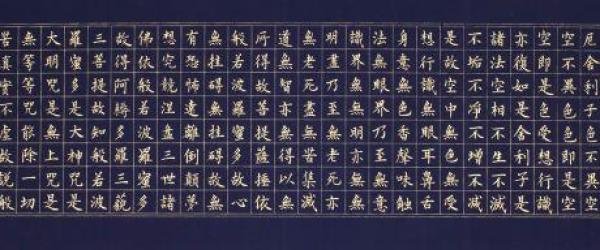 厄舍利子色不異空
空不異色色即是空
空即是色受想行識
亦復如是舍利子是
諸法空相不生不滅
不垢不淨不增不減
是故空中無色無受
想行識無眼耳鼻舌
身意無色聲香味觸
法無眼界乃至無意
識界無無明亦無無
明盡乃至無老死亦
無老死盡無苦集滅
道無智亦無得以無
所得故菩提薩埵依
般若波羅蜜多故心
無罣礙無罣礙故無
有恐怖遠離顛倒夢
想究竟涅槃三世諸
佛依般若波羅蜜多
故得阿耨多羅三藐
三菩提故知般若波
羅蜜多是大神咒是
大明咒是無上咒是
無等等咒能除一切
苦真實不虛故說般